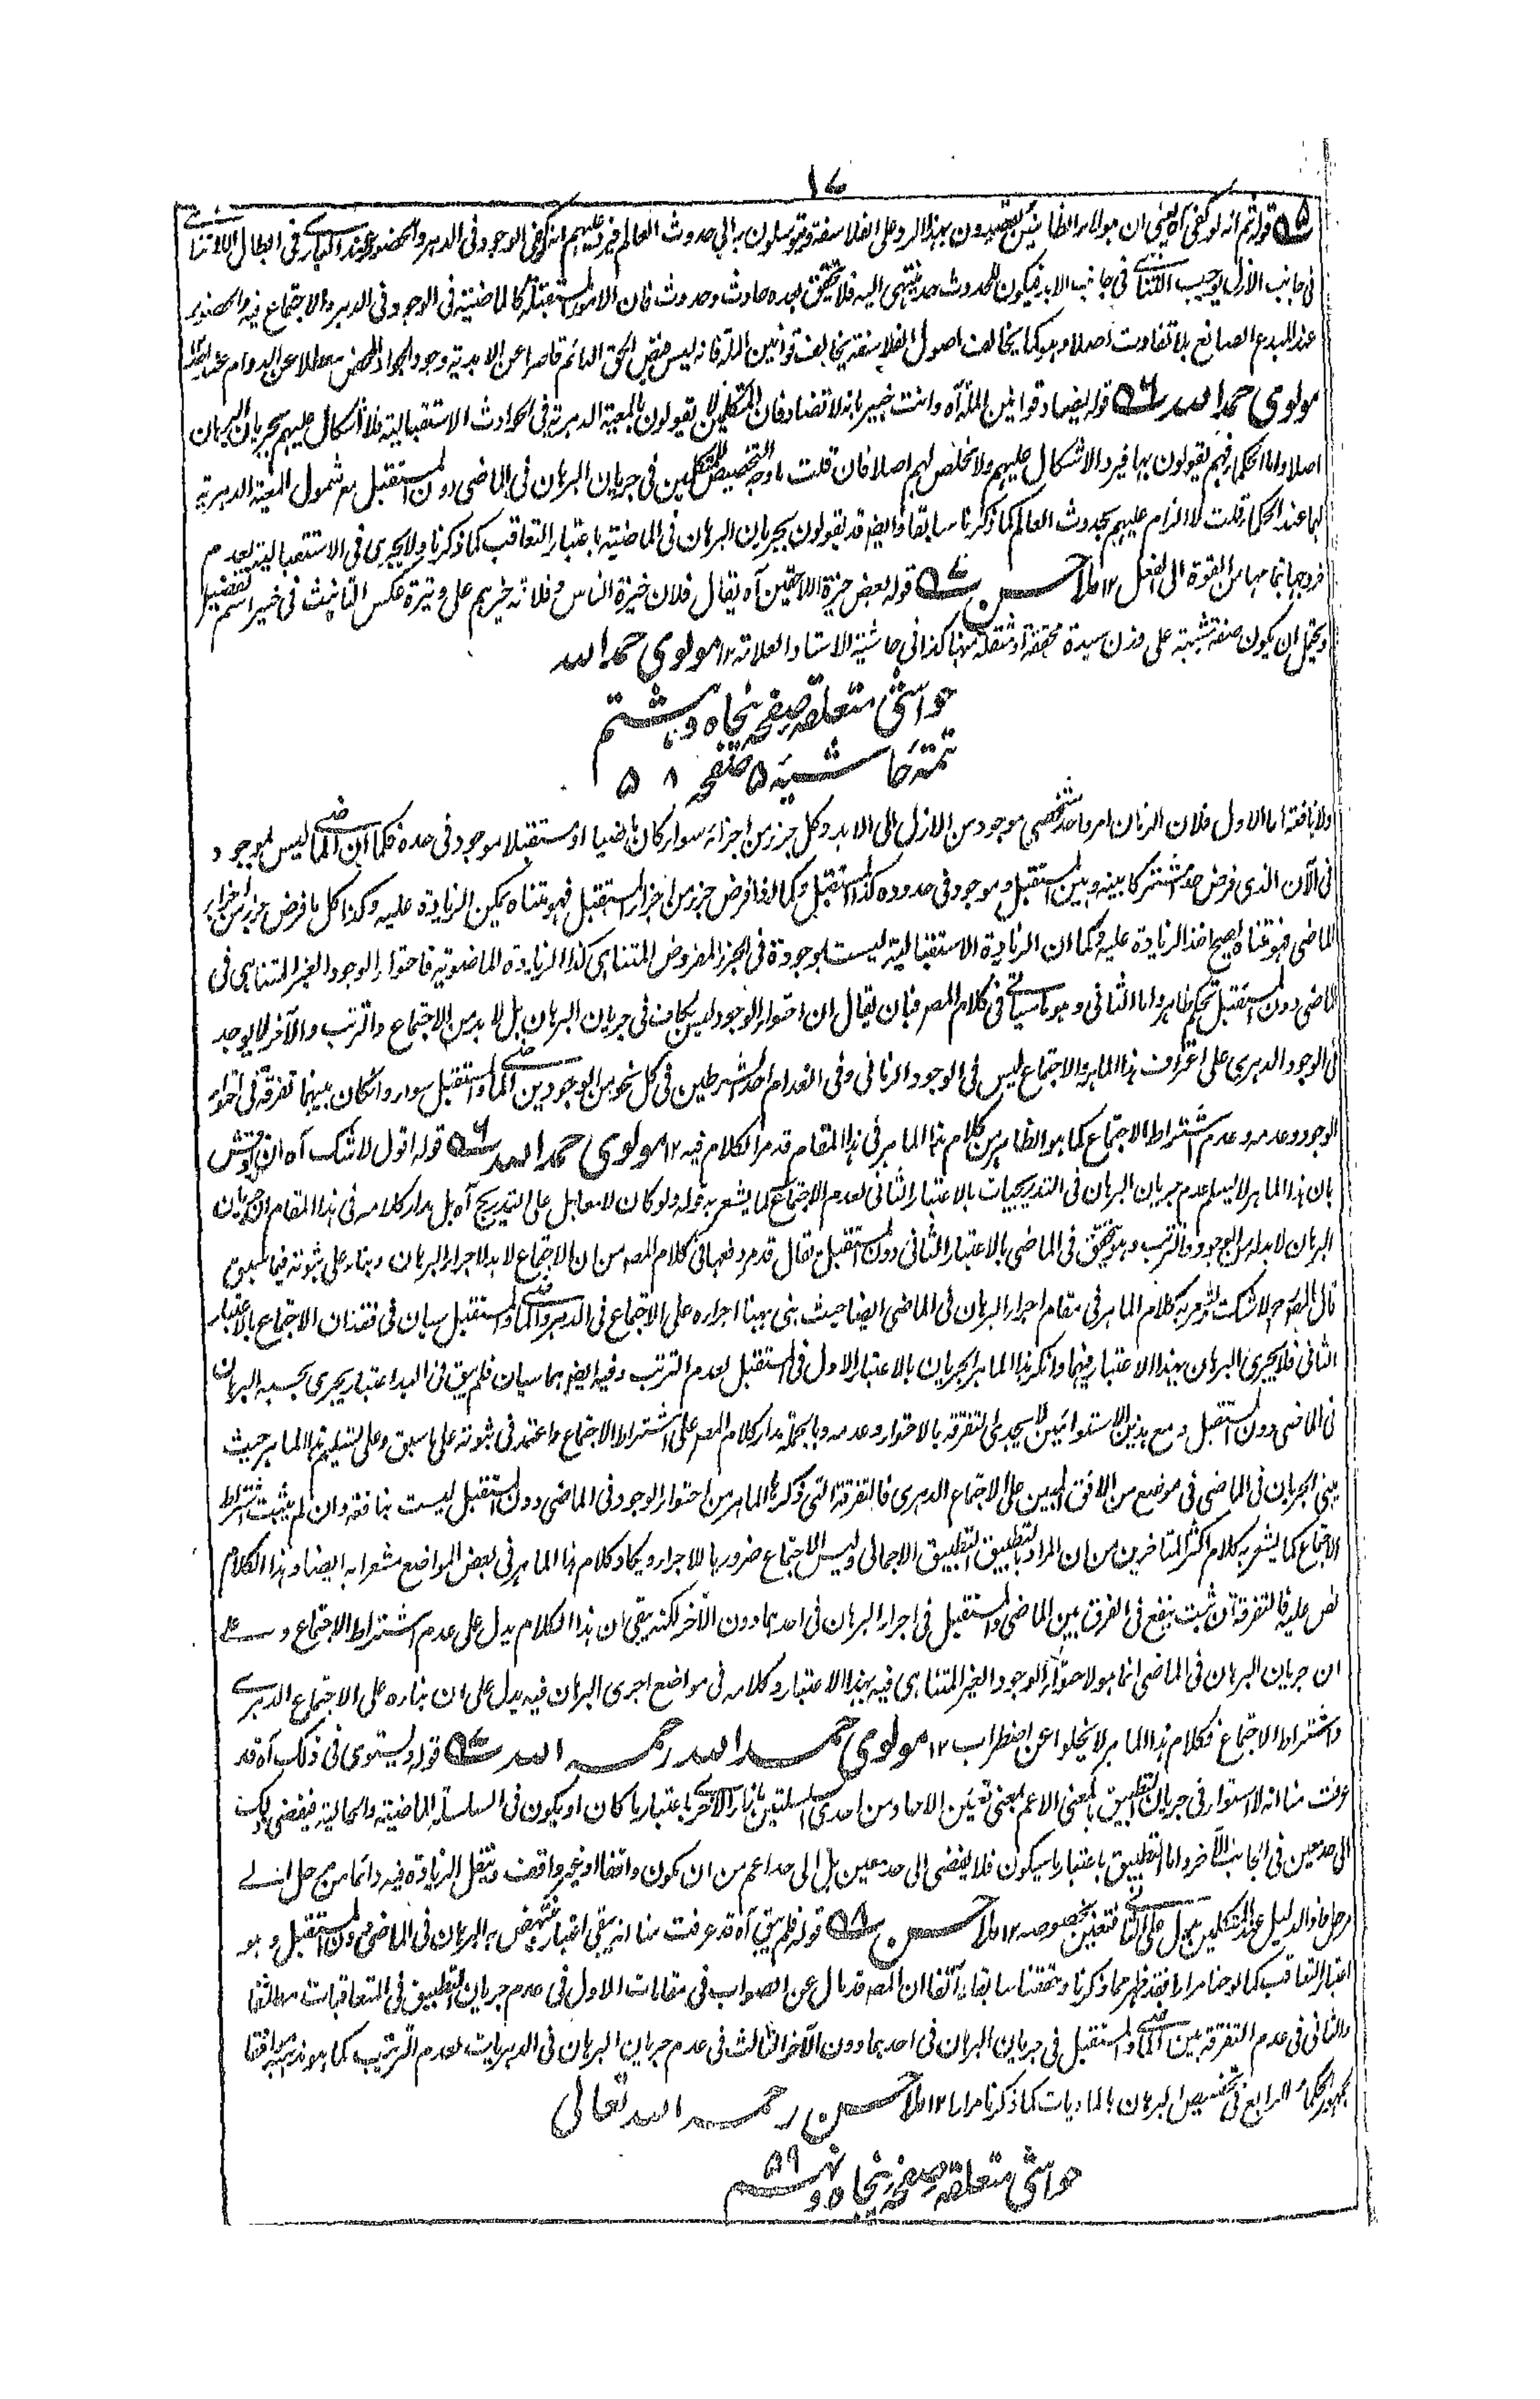 ١٦
٥ قوله ثم انه لو كفى آه يعنى ان هؤلاء الظانين يقصدون بهذا الرد على الفلاسفة ويتوسلون به الى حدوث العالم فيرد عليهم انه لو كفى الوجود فى الدهر والحضور عند البارى فى ابطال اللاتناهى
فى جانب الازل يوجب التناهى فى جانب الابد فيكون للحدوث حد ينتهى اليه فلا يتحقق بعده حادث وحدوث فان الامور المستقبلة كالماضية فى الوجود فى الدهر والاجتماع فيه والحضور
عند المبدع الصانع بلا تفاوت اصلا وهو كما يخالف اصول الفلاسفة يخالف قوانين الملة فانه ليس فيض الحق الدائم قاصرا عن الابدية وجود الجواد المحض معطلا عن الدوام عند الملة
مولوى حمد الله ٦ قوله يضاد قوانين الملة آه وانت خبير بانه لا تضاد فان المتكلمين لا يقولون بالمعية الدهرية فى الحوادث الاستقبالية فلا اشكال عليهم بجريان البرهان
اصلا واما الحكماء فهم يقولون بها فيرد الاشكال عليهم ولا مخلص لهم اصلا فان قلت ما وجه التخصيص للمتكلمين فى جريان البرهان فى الماضى دون المستقبل مع شمول المعية الدهرية
لها عند الحكماء قلت لالزام عليهم بحدوث العالم كما ذكرنا سابقا وايضا قد يقولون بجريان البرهان فى الماضية باعتبار التعاقب كما ذكرنا ولا يجرى فى الاستقبالية لعدم
خروجها بتمامها من القوة الى الفعل ١٢ ملا حسن ٧ قوله بعض خيرة اللاحقين آه يقال فلان خيرة الناس وفلانة خيرهم على وتيرة عكس التانيث فى خير اسم تفضيل
ويحتمل ان يكون صفة مشبهة على وزن سيدة مخففة او مثقلة منها كذا فى حاشية الاستاد العلامة ١٢ مولوى حمد الله
حواشى متعلقه صفحه پنجاه و هشتم
تتمه حاشيه ٥ صفحه ٥٨
ولا نافعة اما الاول فلان الزمان امر واحد شخصى موجود من الازل الى الابد وكل جزء من اجزائه سواء كان ماضيا او مستقبلا موجود فى حده فكما ان الماضى ليس بموجود
فى الآن الذى فرض حدا مشتركا بينه وبين المستقبل وموجود فى حدوده كذا المستقبل وكما اذا فرض جزء من اجزاء المستقبل فهو متناه يمكن الزيادة عليه وكذا كل ما فرض جزء من اجزاء
الماضى فهو متناه يصح اخذ الزيادة عليه فكما ان الزيادة الاستقبالية ليست بموجودة فى الجزء المفروض المتناهى كذا الزيادة الماضوية فاحتواء الوجود الغير المتناهى فى
الماضى دون المستقبل تحكم ظاهر واما الثانى وهو ما سياتى فى كلام المصه فبان يقال ان احتواء الوجود ليس بكاف فى جريان البرهان بل لا بد من الاجتماع والترتب والآخر لا يوجد
فى الوجود الدهرى على اعتراف هذا الماهر والاجتماع ليس فى الوجود الزمانى وفى انعدام احد الشرطين فى كل نحو من الوجودين الماضى والمستقبل سواء وان كان بينهما تفرقة فى احتواء
الوجود وعدمه وعدم اشتراط الاجتماع كما هو الظاهر من كلام هذا الماهر فى هذا المقام قد مر الكلام فيه ١٢ مولوى حمد الله ٦ قوله اقول لا شك آه ان نوقش
بان هذا الماهر لا يسلم عدم جريان البرهان فى التدريجيات بالاعتبار الثانى لعدم الاجتماع كما يشعر به قوله ولو كان لا معا بل على التدريج آه بل مدار كلامه فى هذا المقام ان جريان
البرهان لا بد له من الوجود والترتب وهو متحقق فى الماضى بالاعتبار الثانى دون المستقبل يقال قد مر دفعها فى كلام المصه من ان الاجتماع لا بد لاجراء البرهان وبناء على ثبوته فيما سبق
قال المصه لا شك آه ثم يرد به كلام الماهر فى مقام اجراء البرهان فى الماضى ايضا حيث بنى هينا اجراءه على الاجتماع فى الدهر والماضى والمستقبل سيان فى فقدان الاجتماع بالاعتبار
الثانى فلا يجرى البرهان بهذا الاعتبار فيهما وانكر هذا الماهر الجريان بالاعتبار الاول فى المستقبل لعدم الترتب وفيه ايضا هما سيان فلم يبق فى اليد اعتبار يجرى بحسبه البرهان
فى الماضى دون المستقبل ومع هذين الاستوائين لا يجدى التفرقة بالاحتواء وعدمه وبالجملة مدار كلام المصه على اشتراط الاجتماع واعتمد فى ثبوته على ما سبق وعلى تسليم هذا الماهر حيث
بنى الجريان فى الماضى فى موضع من الافق المبين على الاجتماع الدهرى فالتفرقة التى ذكرها الماهر من احتواء الوجود فى الماضى دون المستقبل ليست بنافعة وان لم يثبت اشتراط
الاجتماع كما يشعر به كلام اكثر المتاخرين من ان المراد بالتطبيق التطبيق الاجمالى وليس الاجتماع ضروريا للاجراء ويكاد كلام هذا الماهر فى بعض المواضع مشعرا به ايضا وهذا الكلام
نص عليه فالتفرقة ان ثبت ينفع فى الفرق بين الماضى والمستقبل فى اجراء البرهان فى احدهما دون الآخر لكنه يبقى ان هذا الكلام يدل على عدم اشتراط الاجتماع وعلى
ان جريان البرهان فى الماضى انما هو لاحتواء الوجود الغير المتناهى فيه بهذا الاعتبار وكلامه فى مواضع اجرى البرهان فيه يدل على ان بناءه على الاجتماع الدهرى
واشتراط الاجتماع فكلام هذا الماهر لا يخلو عن اضطراب ١٢ مولوى حمد الله رحمه الله ٧ قوله ويستوى فى ذلك آه قد
عرفت منا انه لا استواء فى جريان التطبيق بالمعنى الاعم بمعنى تعين الآحاد من احدى السلسلتين بازاء الآخر باعتبار ما كان او يكون فى السلسلة الماضية والحالية فيفضى ذلك
الى حد معين فى الجانب الآخر واما التطبيق باعتبار ما سيكون فلا يفضى الى حد معين بل الى حد اعم من ان يكون واقفا او غير واقف وتنقل الزيادة فيه دائما من مرحلة الى
مرحلة فاذا الدليل عند المتكلمين يدل على التناهى فتعين بخصوصه ١٢ ملا حسن ٨ قوله فلم يبق آه قد عرفت منا انه يبقى اعتبار ينتهض به البرهان فى الماضى دون المستقبل وهو
اعتبار التعاقب كما اوضحنا مرارا فقد ظهر مما ذكرنا وحققنا سابقا وآنفا ان المصه قد مال عن الصواب فى مقامات الاول فى عدم جريان التطبيق فى المتعاقبات مطلقا
والثانى فى عدم التفرقة بين الماضى والمستقبل فى جريان البرهان فى احدهما دون الآخر الثالث فى عدم جريان البرهان فى الدهريات لعدم الترتيب كما هو مذهبه موافقا
لجمهور الحكماء الرابع فى تخصيص البرهان بالماديات كما ذكرنا مرارا ١٢ ملا حسن رحمه الله تعالى
حواشى متعلقه صفحه پنجاه و نهم ٥٩